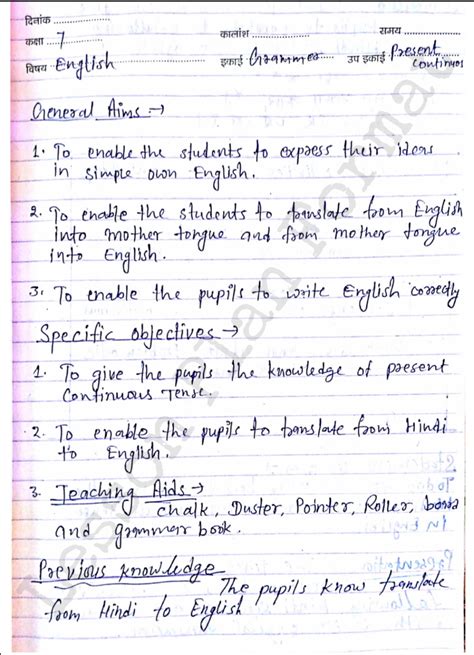 दिनांक ..................
कक्षा ..7.................. कालांश ........................ समय ..................
विषय English इकाई Grammer उप इकाई Present
continuos
General Aims :→
1. To enable the students to express their ideas
in simple own English.
2. To enable the students to translate from English
into mother tongue and from mother tongue
into English.
3. To enable the pupils to write English correctly
Specific objectives →
1. To give the pupils the knowledge of present
Continuous Tense.
2. To enable the pupils to translate from Hindi
to English.
3. Teaching Aids →
chalk, Duster, Pointer, Roller, board
and grammar book.
Previous knowledge
The pupils know translate
from Hindi to English
Lesson Plan Format